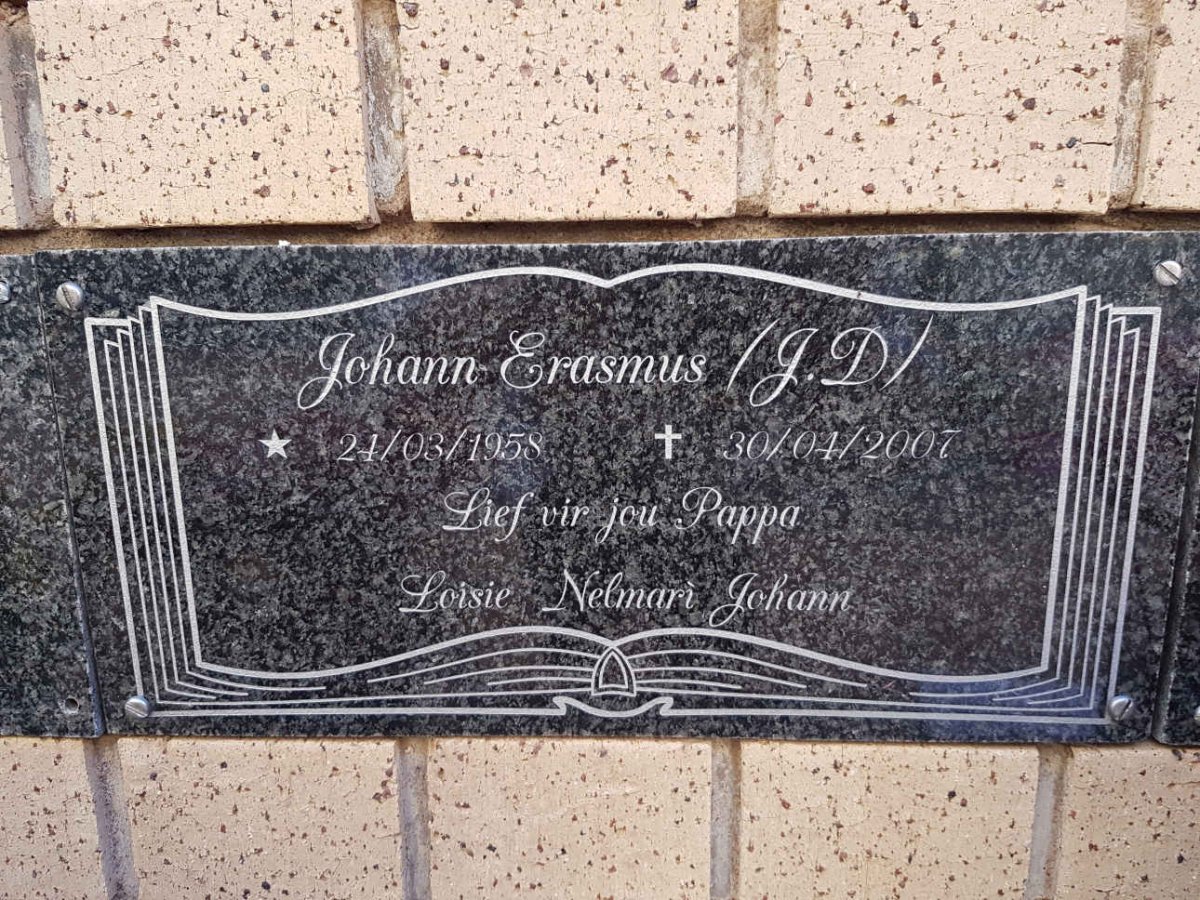 Johann Erasmus (J.D)
24/03/1958 30/04/2007
Lief vir jou Pappa
Loisie Nelmarì Johann